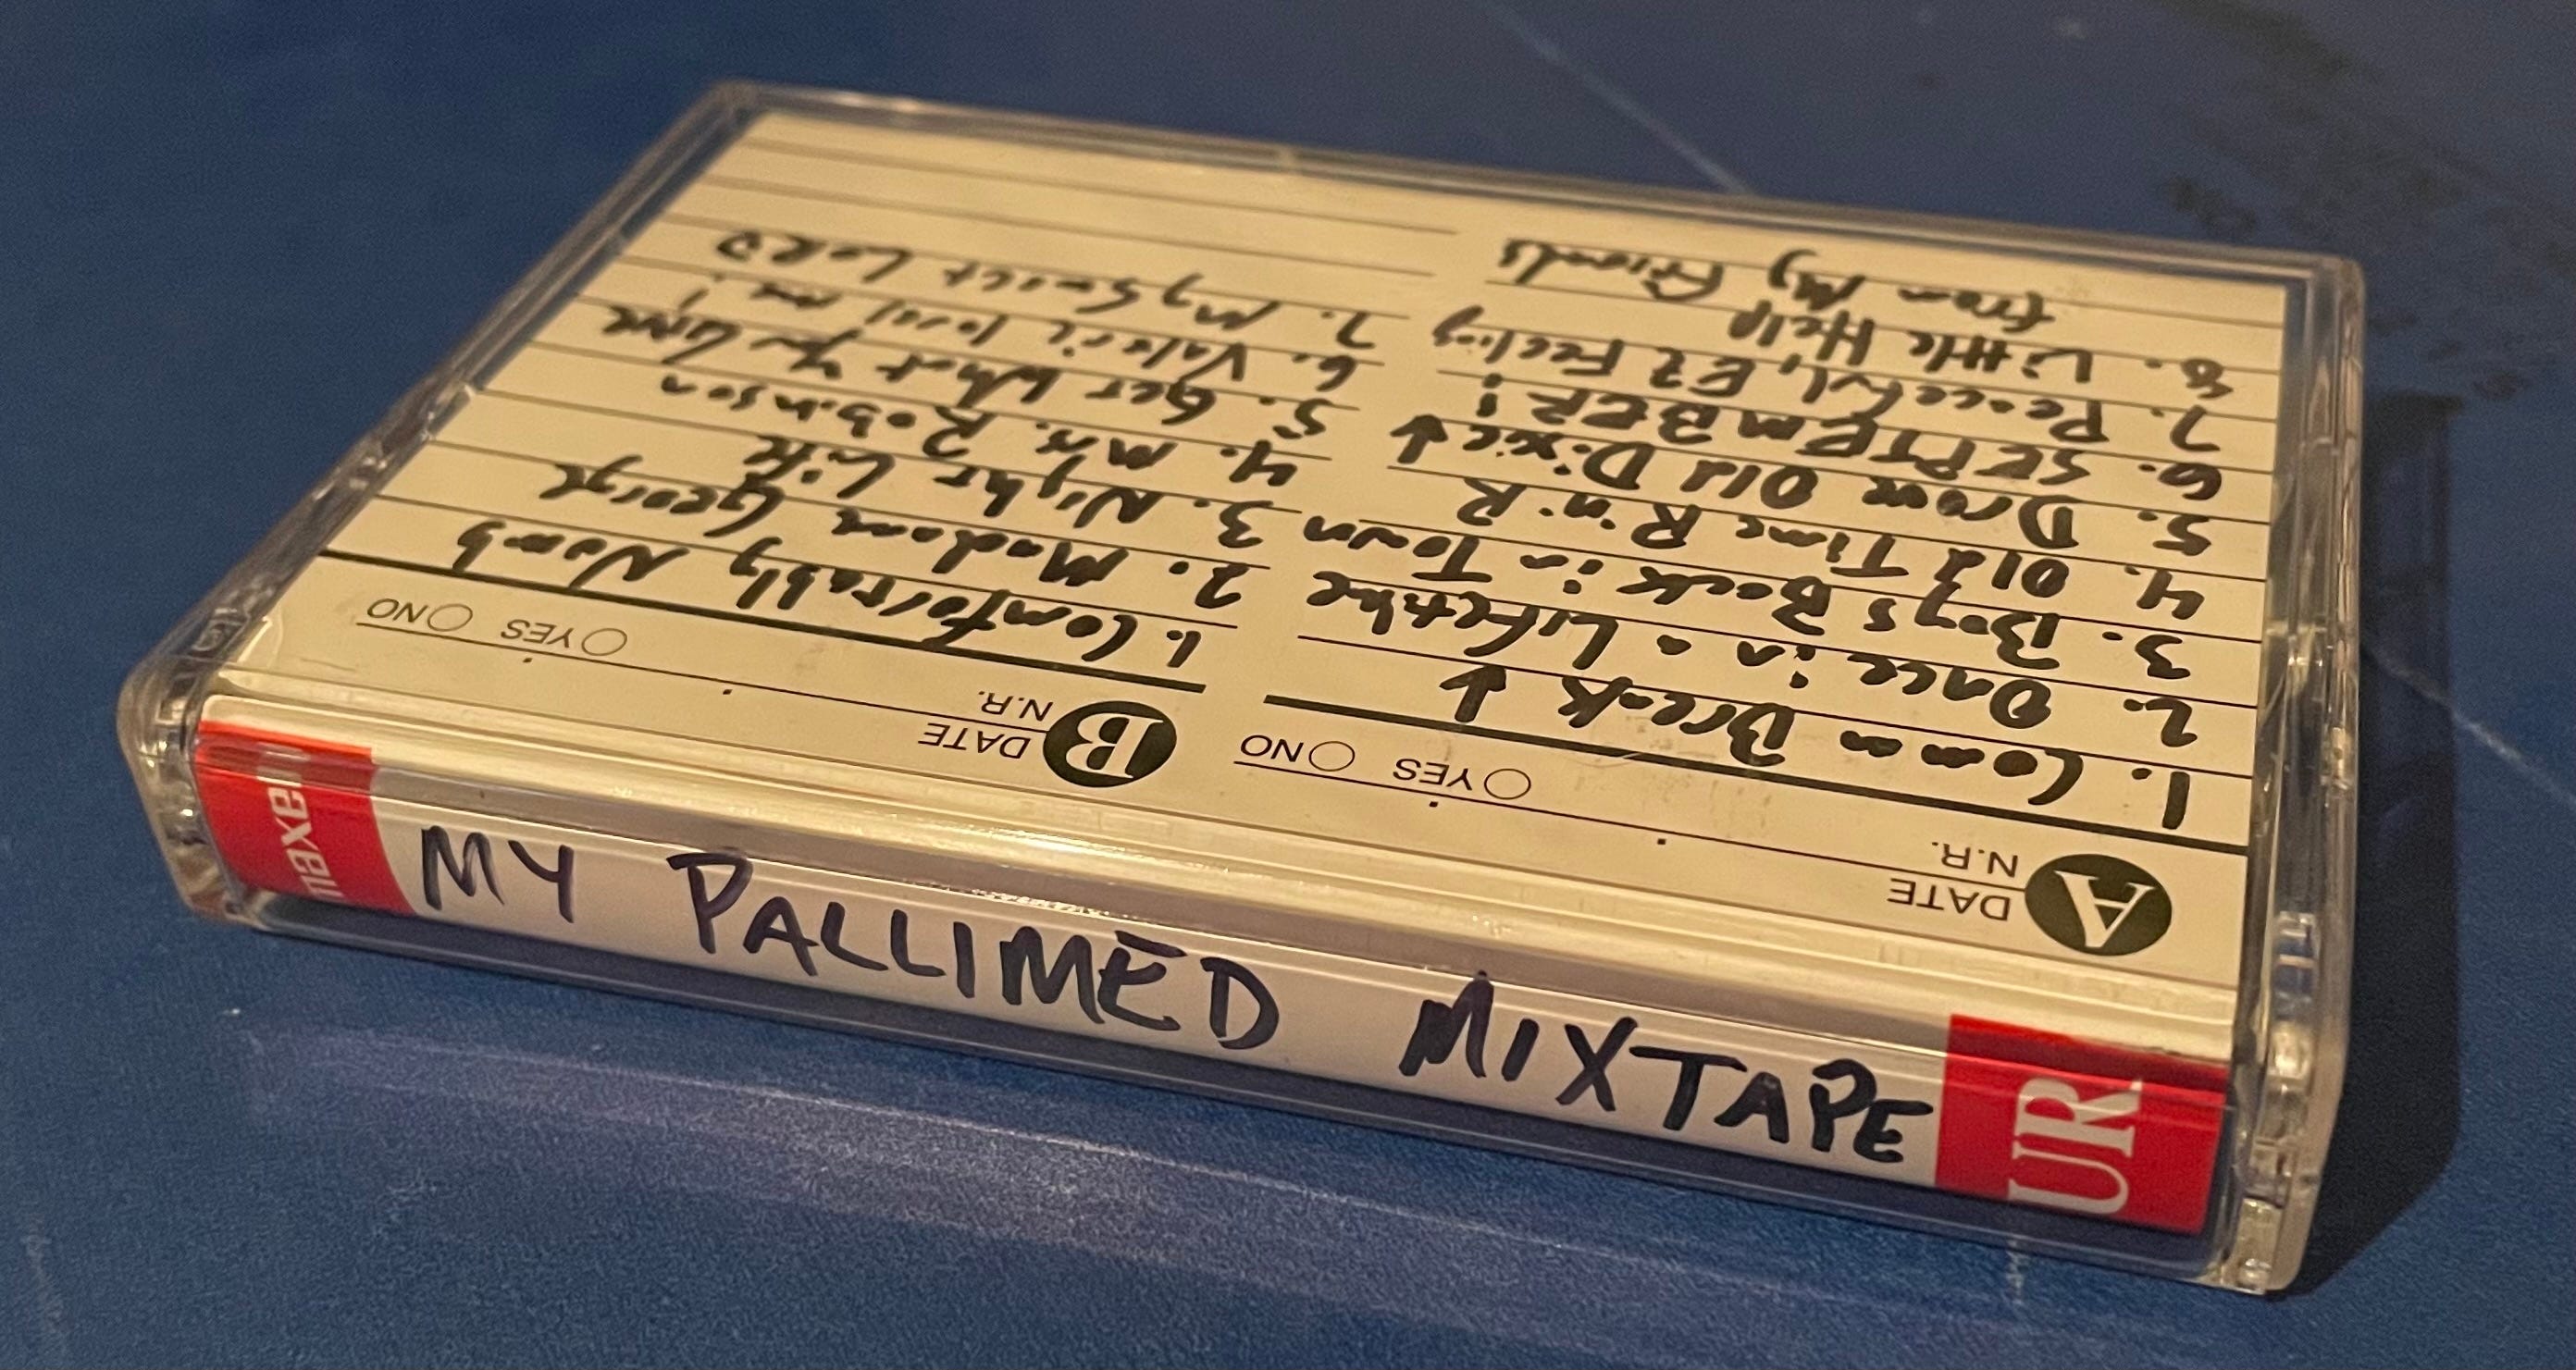 maxell
MY PALLIMED MIXTAPE
UR
A
DATE
N.R.
YES NO
1. Comm n Break ↓
2. Once in a Lifetime
3. Boys Back in Town
4. Old Time R 'n' R
5. Drove Old Dixie ↓
6. SEPTEMBER!
7. Peaceful, EZ Feeling
8. Little Help
from My Friends
B
DATE
N.R.
YES NO
1. Comfortably Numb
2. Madam George
3. Night Life
4. Mrs. Robinson
5. Get What You Give
6. Valerie loves me!
7. My Sweet LORD